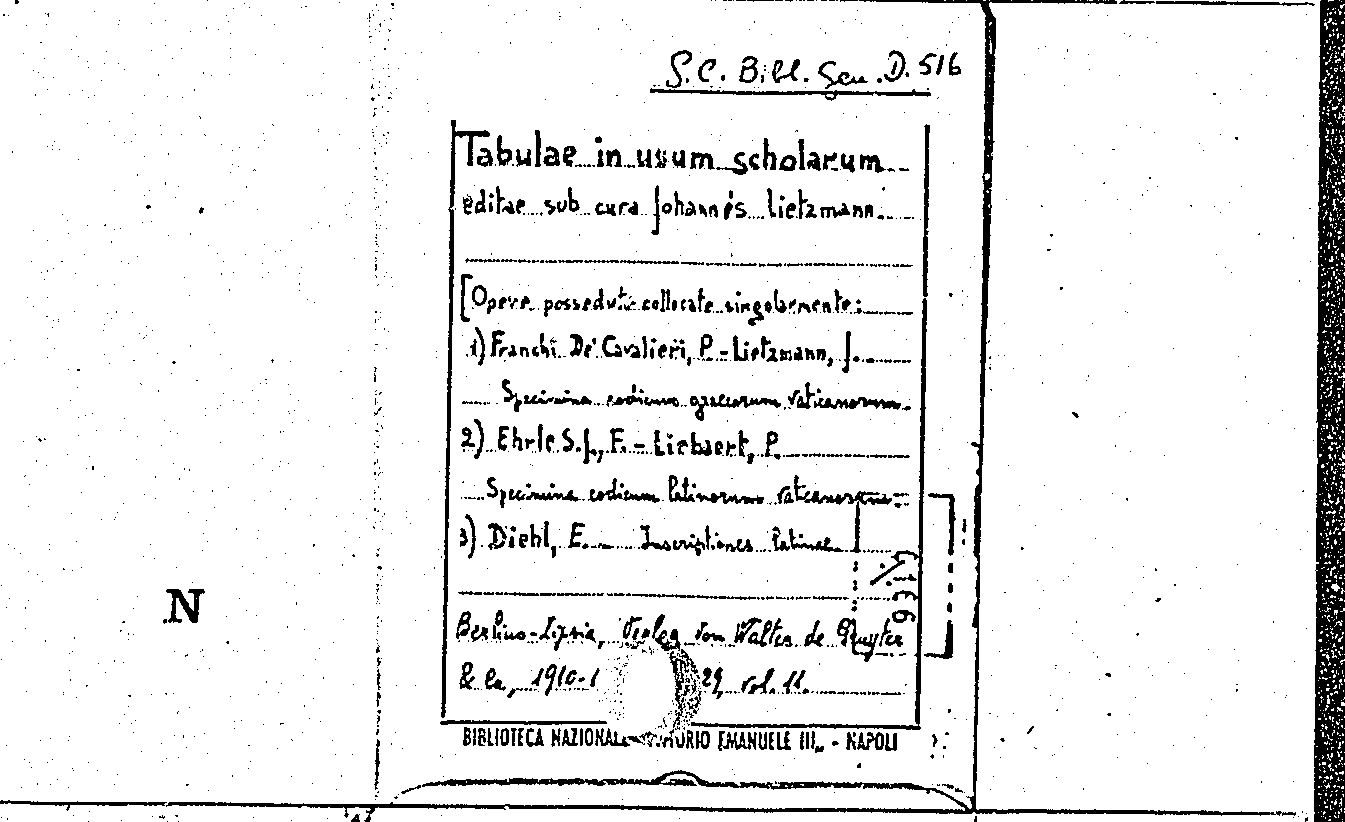 S.C. Bibl. Gen. D. 516
Tabulae in usum scholarum
editae sub cura Johannes Lietzmann.
[Opere possedute collocate singolarmente:
1) Franchi De' Cavalieri, P. - Lietzmann, J.
Specimina codicum graecorum vaticanorum.
2) Ehrle S.J., F. - Liebaert, P.
Specimina codicum latinorum vaticanorum.
3) Diehl, E. - Inscriptiones latinae.
Berlino-Lipsia, Verlag von Walter de Gruyter
& Co., 1910-1 29, vol. 11.
BIBLIOTECA NAZIONALE EMANUELE III,, - NAPOLI
N